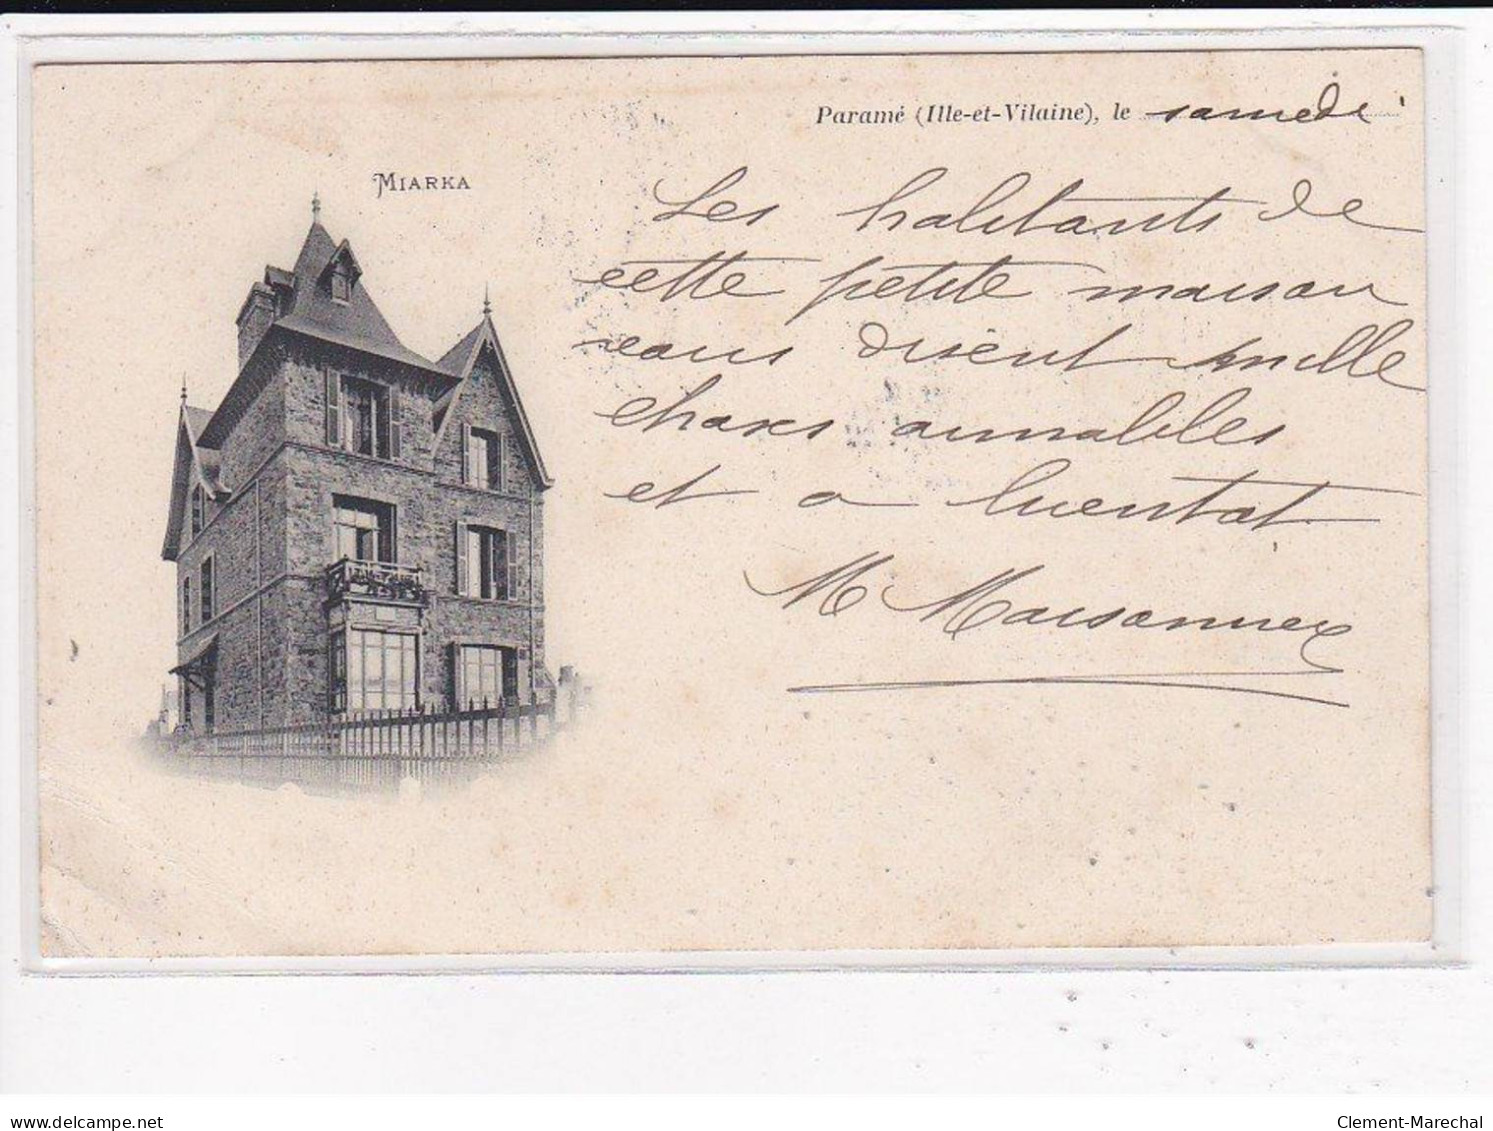 Paramé (Ille-et-Vilaine), le samedi
MIARKA
Les habitants de
cette petite maison
vous disent mille
choses aimables
et a bientot
M Maisonneu
delcampe.net
Clement-Marechal